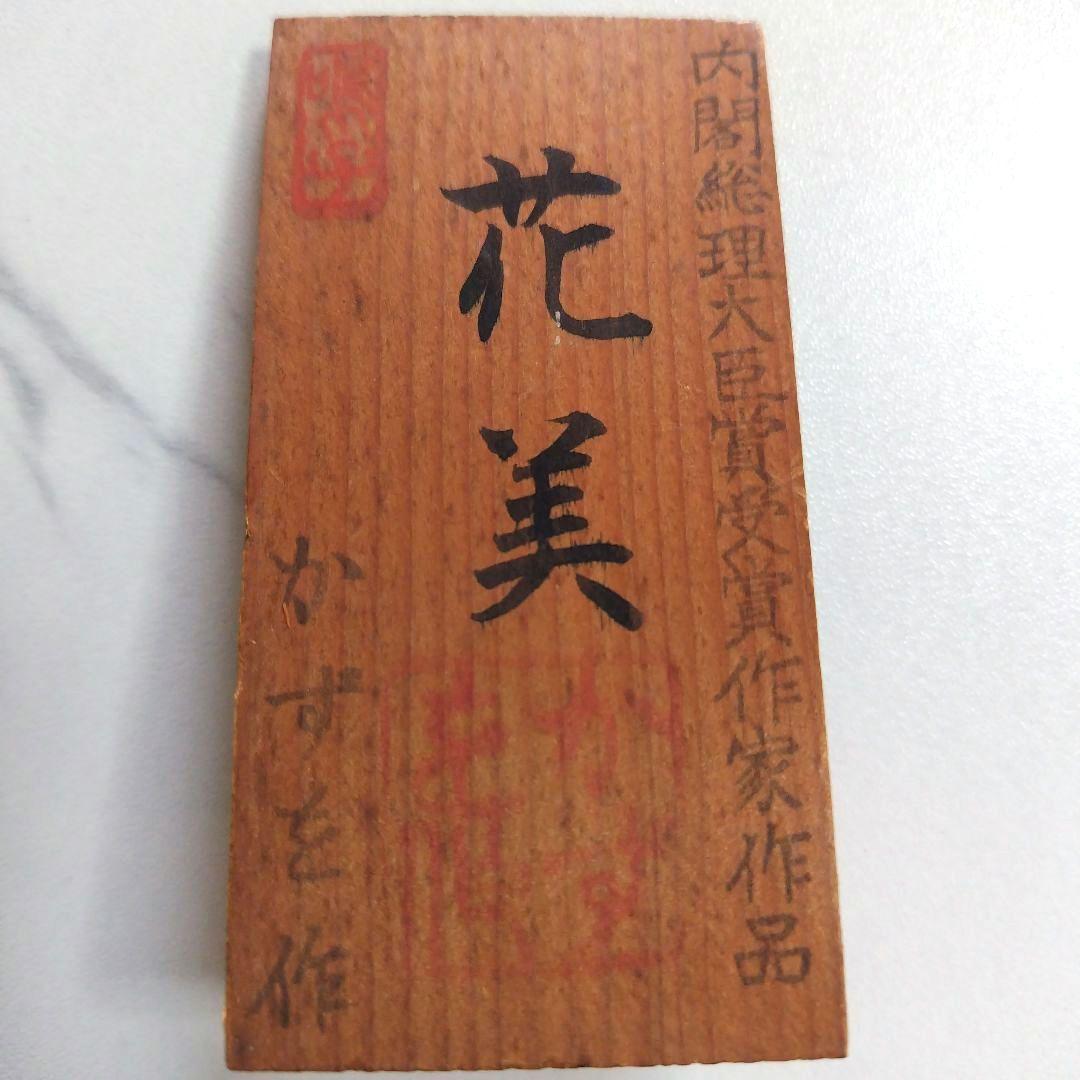 内閣総理大臣賞受賞作家作品
花美
かずを作